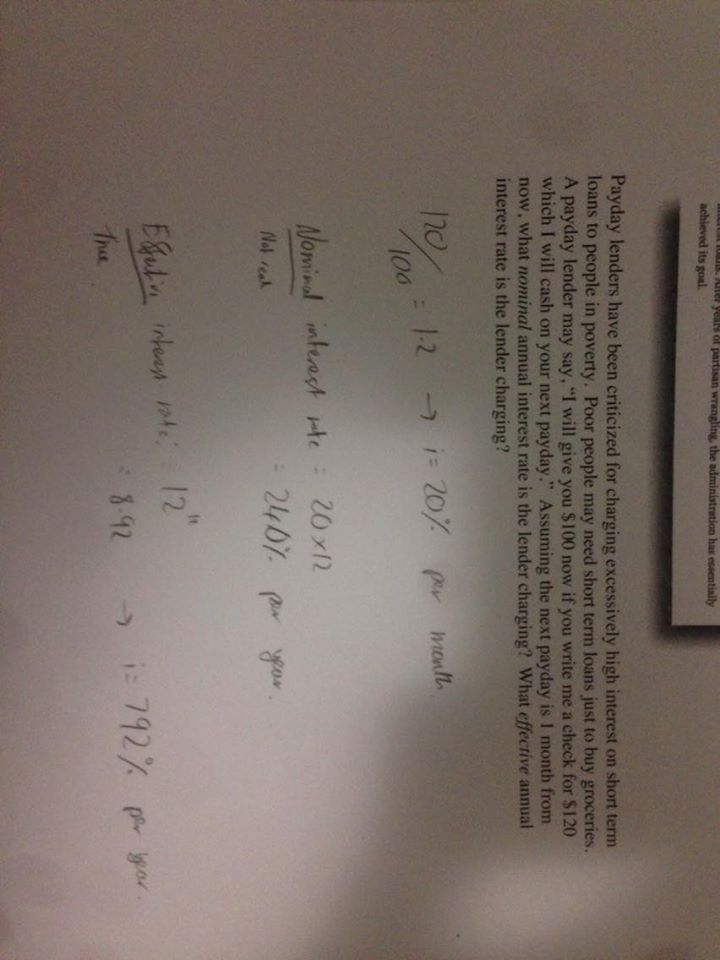 years of partisan wrangling, the administration has essentially
achieved its goal.
Payday lenders have been criticized for charging excessively high interest on short term
loans to people in poverty. Poor people may need short term loans just to buy groceries.
A payday lender may say, "I will give you $100 now if you write me a check for $120
which I will cash on your next payday." Assuming the next payday is 1 month from
now, what nominal annual interest rate is the lender charging? What effective annual
interest rate is the lender charging?
120/100 = 1.2 → i = 20% per month.
Nominal interest rate = 20 x 12
Not real = 240% per year.
Effective interest rate: = 1.2
True = 8.92 → i = 792% per year.